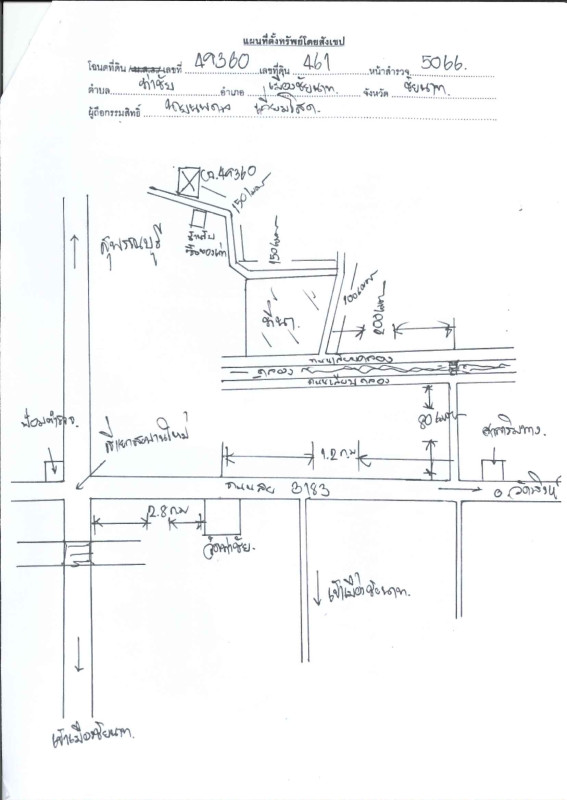 แผนที่ตั้งทรัพย์โดยสังเขป
โฉนดที่ดิน เลขที่ 49360 เลขที่ดิน 461 หน้าสำรวจ 5066.
ตำบล ท่าชัย อำเภอ เมืองชัยนาท. จังหวัด ชัยนาท.
ผู้ถือกรรมสิทธิ์
ฉ.49360
150 เมตร
สุพรรณบุรี
ร้านรับ
ซื้อของเก่า
150 เมตร
100 เมตร
ที่นา
200 เมตร
ถนนเลียบคลอง
คลอง
ถนนเลียบคลอง
ป้อมตำรวจ.
สี่แยกสะพานใหม่
80 เมตร
ศาลาริมทาง.
1.2 ก.ม
ถนนสาย 3183
อ.วัดสิงห์
2.8 ก.ม
วัดท่าชัย.
เข้าเมืองชัยนาท.
เข้าเมืองชัยนาท.